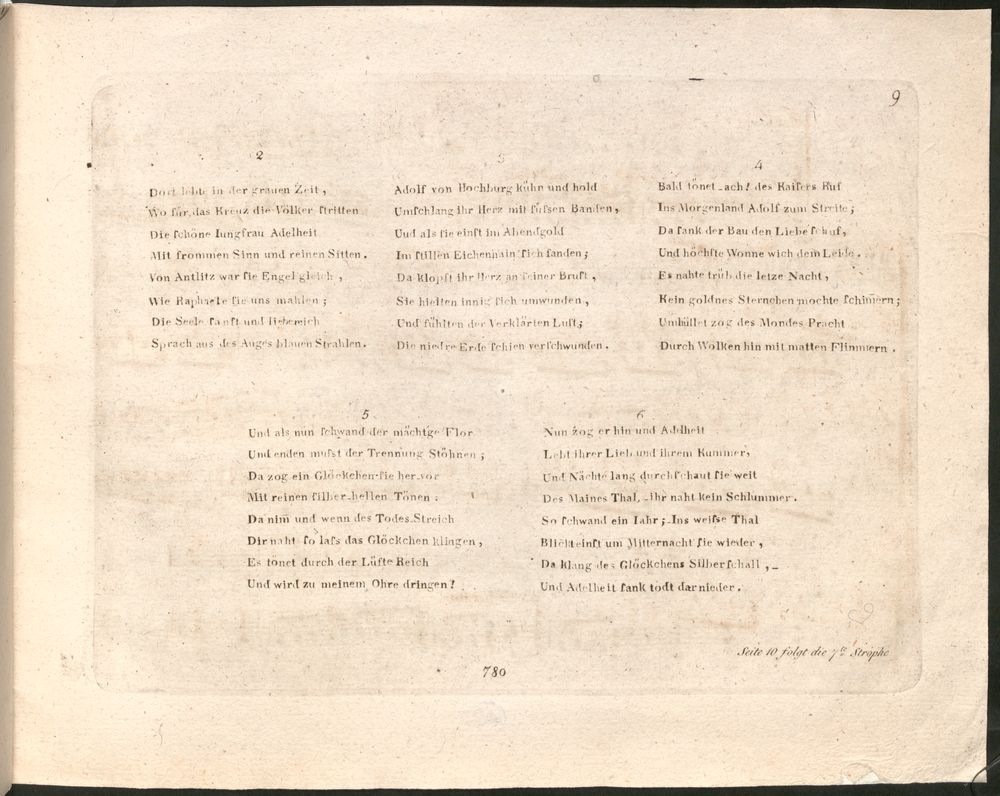 9
2
Dort lebte in der grauen Zeit,
Wo für das Kreuz die Völker ſtritten
Die ſchöne Iungfrau Adelheit
Mit frommen Sinn und reinen Sitten.
Von Antlitz war ſie Engel gleich,
Wie Raphaele ſie uns mahlen;
Die Seele ſanft und liebereich
Sprach aus des Auges blauen Strahlen.
3
Adolf von Hochburg kühn und hold
Umſchlang ihr Herz mit ſüſsen Banden,
Uud als ſie einſt im Abendgold
Im ſtillen Eichenhain ſich fanden;
Da klopft ihr Herz an ſeiner Bruſt,
Sie hielten innig ſich umwunden,
Und fühlten der Verklärten Luſt;
Die niedre Erde ſchien verſchwunden.
4
Bald tönet ach! des Kaiſers Ruf
Ins Morgenland Adolf zum Streite;
Da ſank der Bau den Liebe ſchuf,
Und höchſte Wonne wich dem Leide.
Es nahte trüb die letze Nacht,
Kein goldnes Sternchen mochte ſchim̄ern;
Umhüllet zog des Mondes Pracht
Durch Wolken hin mit matten Flimmern.
5
Und als nun ſchwand der mächtge Flor
Und enden muſst der Trennung Stöhnen;
Da zog ein Glöckchen ſie hervor
Mit reinen ſilber-hellen Tönen:
Da nim̄ und wenn des Todes-Streich
Dir naht ſo laſs das Glöckchen klingen,
Es tönet durch der Lüfte Reich
Und wird zu meinem Ohre dringen!
6
Nun zog er hin und Adelheit
Lebt ihrer Lieb und ihrem Kummer,
Und Nächte lang durchſchaut ſie weit
Des Maines Thal, ihr naht kein Schlummer.
So ſchwand ein Iahr; Ins weiſse Thal
Blickt einſt um Mitternacht ſie wieder,
Da klang des Glöckchens Silberſchall, _
Und Adelheit ſank todt darnieder.
Seite 10 folgt die 7te Strophe
780